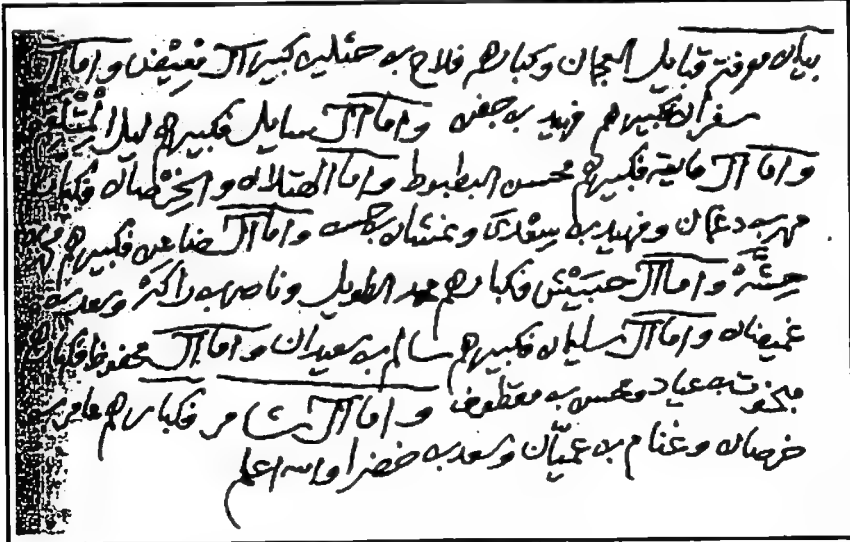 بيان معرفة قبايل العجمان وكبارهم فلاح بن حثلين كبير آل معيض واما آل
سفران فكبيرهم فهيد بن جفن واما آل سايل فكبيرهم ليل المتلقم
واما آل مايقه فكبيرهم محسن البطبوط واما الهتلان والخرصان فكبارهم
بن دغمان وفهيد بن سعدى وغنشان بن واما آل ضاعن فكبيرهم
حشة واما آل حبيش فكبارهم الطويل وناصر بن راكة وسعد بن
غميضان واما آل سليمان فكبيرهم سالم بن سعيدان واما آل محفوظ فكبارهم
منخوت بن عياد ومحسن بن معطوف واما آل شامر فكبارهم عامر بن
خرصان وغنام بن عميّان وسعد بن خضرا والله اعلم